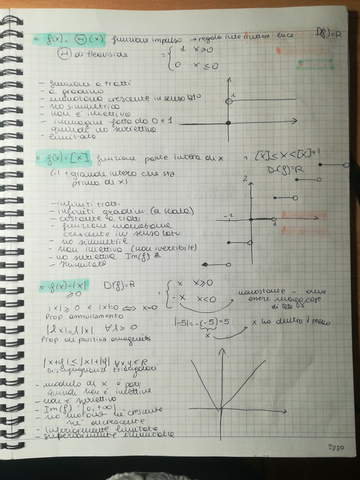 f(x) = H(x) funzione impulso → regola interruttore luce D(f)=R
H di Heaviside = { 1 x≥0
0 x≤0
- funzione a tratti
- a gradino
- monotona crescente in senso lato
- no simmetrica
- non è iniettiva
- immagine fatta da 0 e 1
quindi no suriettiva
- limitata
f(x)=[x] funzione parte intera di x + [x]≤x<[x]+1
(il + grande intero che sta D(f)=R
prima di x)
- infiniti tratti
- infiniti gradini (a scala)
- costante a tratti
- funzione monotona
crescente in senso lato
- no simmetrie
- non iniettiva (non invertibile)
- no suriettiva Im(f)=Z
- illimitata
f(x)=|x| D(f)=R = { x x≥0
≥0 -x x<0
|x|≥0 |x|=0 ⇔ x=0
Prop. annullamento |-5|=-(-5)=5
|λx|=λ|x| ∀λ≥0 x
Prop.
|x+y|≤|x|+|y| ∀x,y∈R
disuguaglianza triangolare
- modulo di x è pari
quindi non è iniettiva
- non è suriettiva
- Im(f) [0,+∞)
- no monotona né crescente
né decrescente
- inferiormente limitata
- superiormente illimitata
Typo